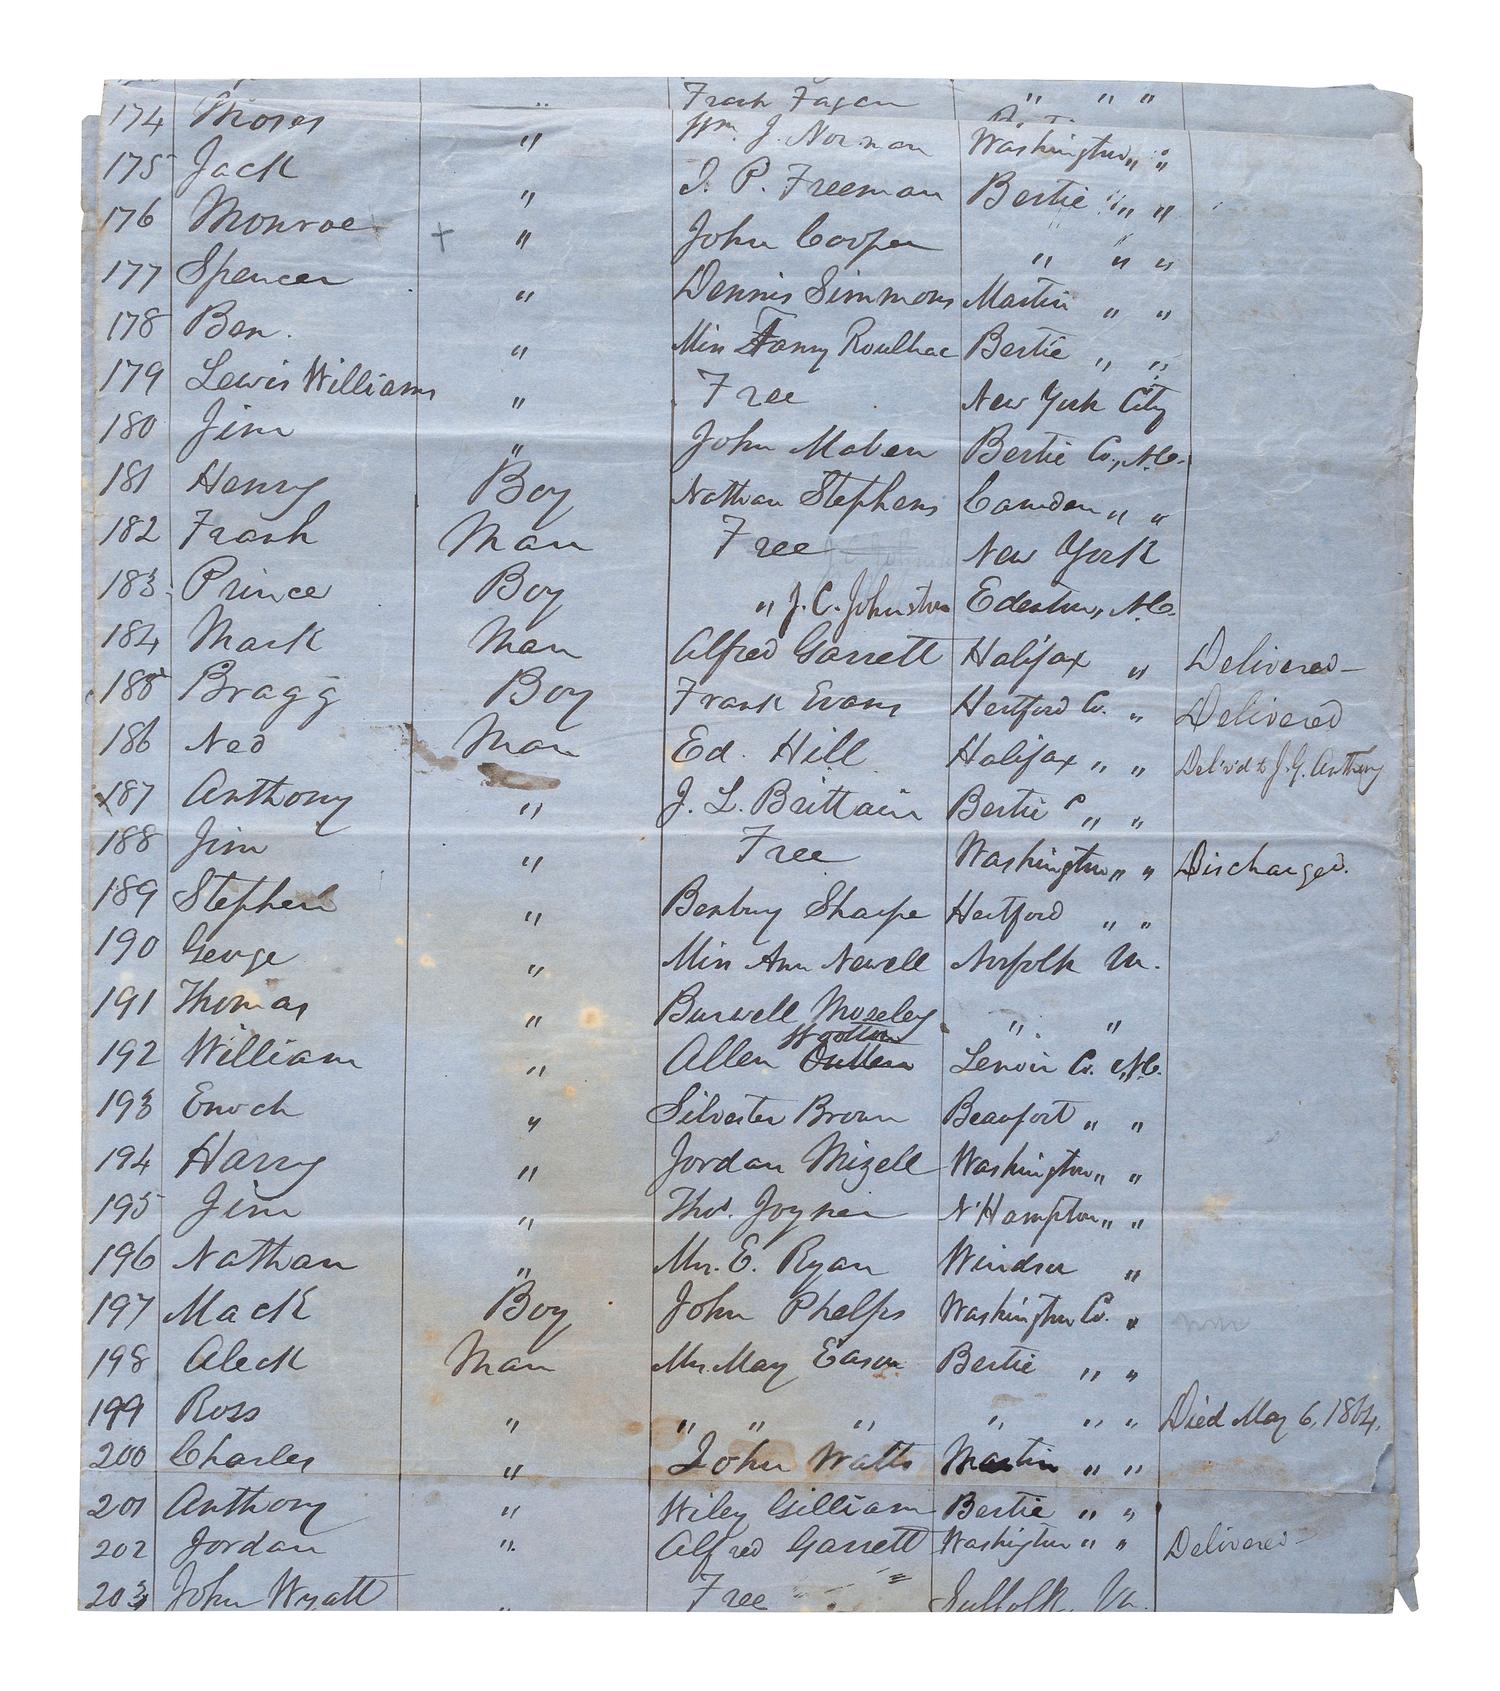 " Frank Fagan " " "
174 Moses " Wm. J. Norman Washington " "
175 Jack " J. P. Freeman Bertie " "
176 Monroe + " John Cooper " " "
177 Spencer " Dennis Simmons Martin " "
178 Ben. " Miss Fanny Roulhac Bertie " "
179 Lewis Williams " Free New York City
180 Jim " John Maben Bertie Co., N.C.
181 Henry Boy Nathan Stephens Camden " "
182 Frank Man Free New York
183 Prince Boy " J. C. Johnston Edenton, N.C.
184 Mark Man Alfred Garrett Halifax " Delivered
185 Bragg Boy Frank Evans Hertford Co. " Delivered
186 Ned Man Ed. Hill Halifax " " Deliv'd to J. G. Anthony
187 Anthony " J. L. Brittain Bertie C " "
188 Jim " Free Washington " " Discharged.
189 Stephen " Benbury Sharpe Hertford " "
190 George " Miss Ann Newell Norfolk Va.
191 Thomas " Burwell Moseley " "
Wootten
192 William " Allen Outten Lenoir Co. N.C.
193 Enoch " Silvester Brown Beaufort " "
194 Harry " Jordan Mizell Washington " "
195 Jim " Thos. Joyner N'Hampton " "
196 Nathan " Mrs. E. Ryan Windsor "
197 Mack Boy John Phelps Washington Co. "
198 Aleck Man Mrs. May Eason Bertie " "
199 Ross " " " " " " " Died May 6, 1864.
200 Charles " John Watts Martin " "
201 Anthony " Wiley Gilliam Bertie " "
202 Jordan " Alfred Garrett Washington " " Delivered
203 John Wyatt " Free Suffolk, Va.